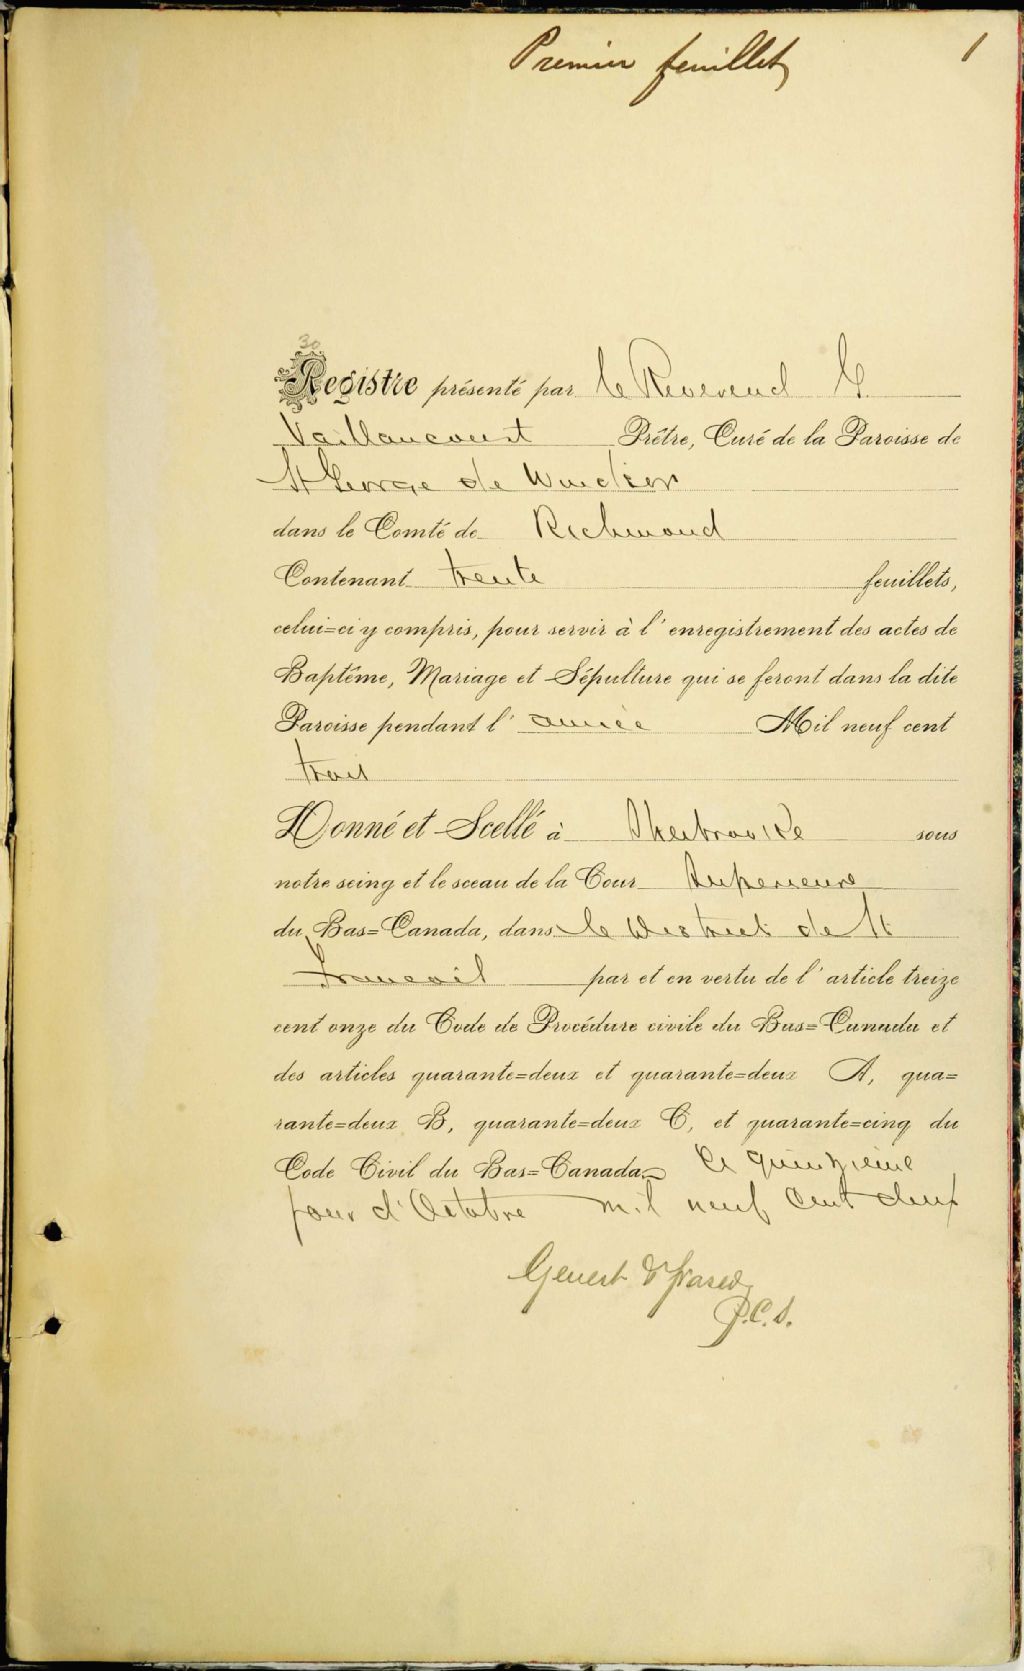 Premier feuillet
1
30
Registre présenté par le Reverend G
Vaillancourt Prêtre, Curé de la Paroisse de
St George de Windsor
dans le Comté de Richmond
Contenant trente feuillets,
celui=ci y compris, pour servir à l'enregistrement des actes de
Baptême, Mariage et Sépulture qui se feront dans la dite
Paroisse pendant l'année Mil neuf cent
trois
Donné et Scellé à Sherbrooke sous
notre seing et le sceau de la Cour Superieure
du Bas=Canada, dans le District de St
Francois par et en vertu de l'article treize
cent onze du Code de Procédure civile du Bas=Canada et
des articles quarante=deux et quarante=deux A, qua=
rante=deux B, quarante=deux C, et quarante=cinq du
Code Civil du Bas=Canada. Ce quinzieme
jour d'Octobre mil neuf cent deux
Genest & Fraser
P.C.S.